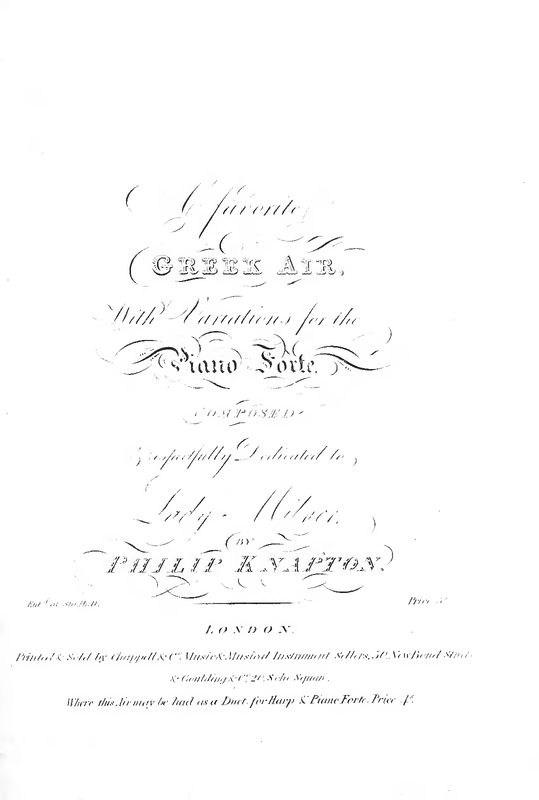 A favorite
GREEK AIR,
With Variations for the
Piano Forte.
COMPOSED
Respectfully Dedicated to
Lady Milner,
BY
PHILIP KNAPTON.
Entd. at Sta. Hall. Price
LONDON.
Printed & Sold by Chappell & Co. Music & Musical Instrument Sellers, 50, New Bond Street
& Goulding & Co. 20, Soho Square.
Where this Air may be had as a Duet for Harp & Piano Forte. Price 4s.